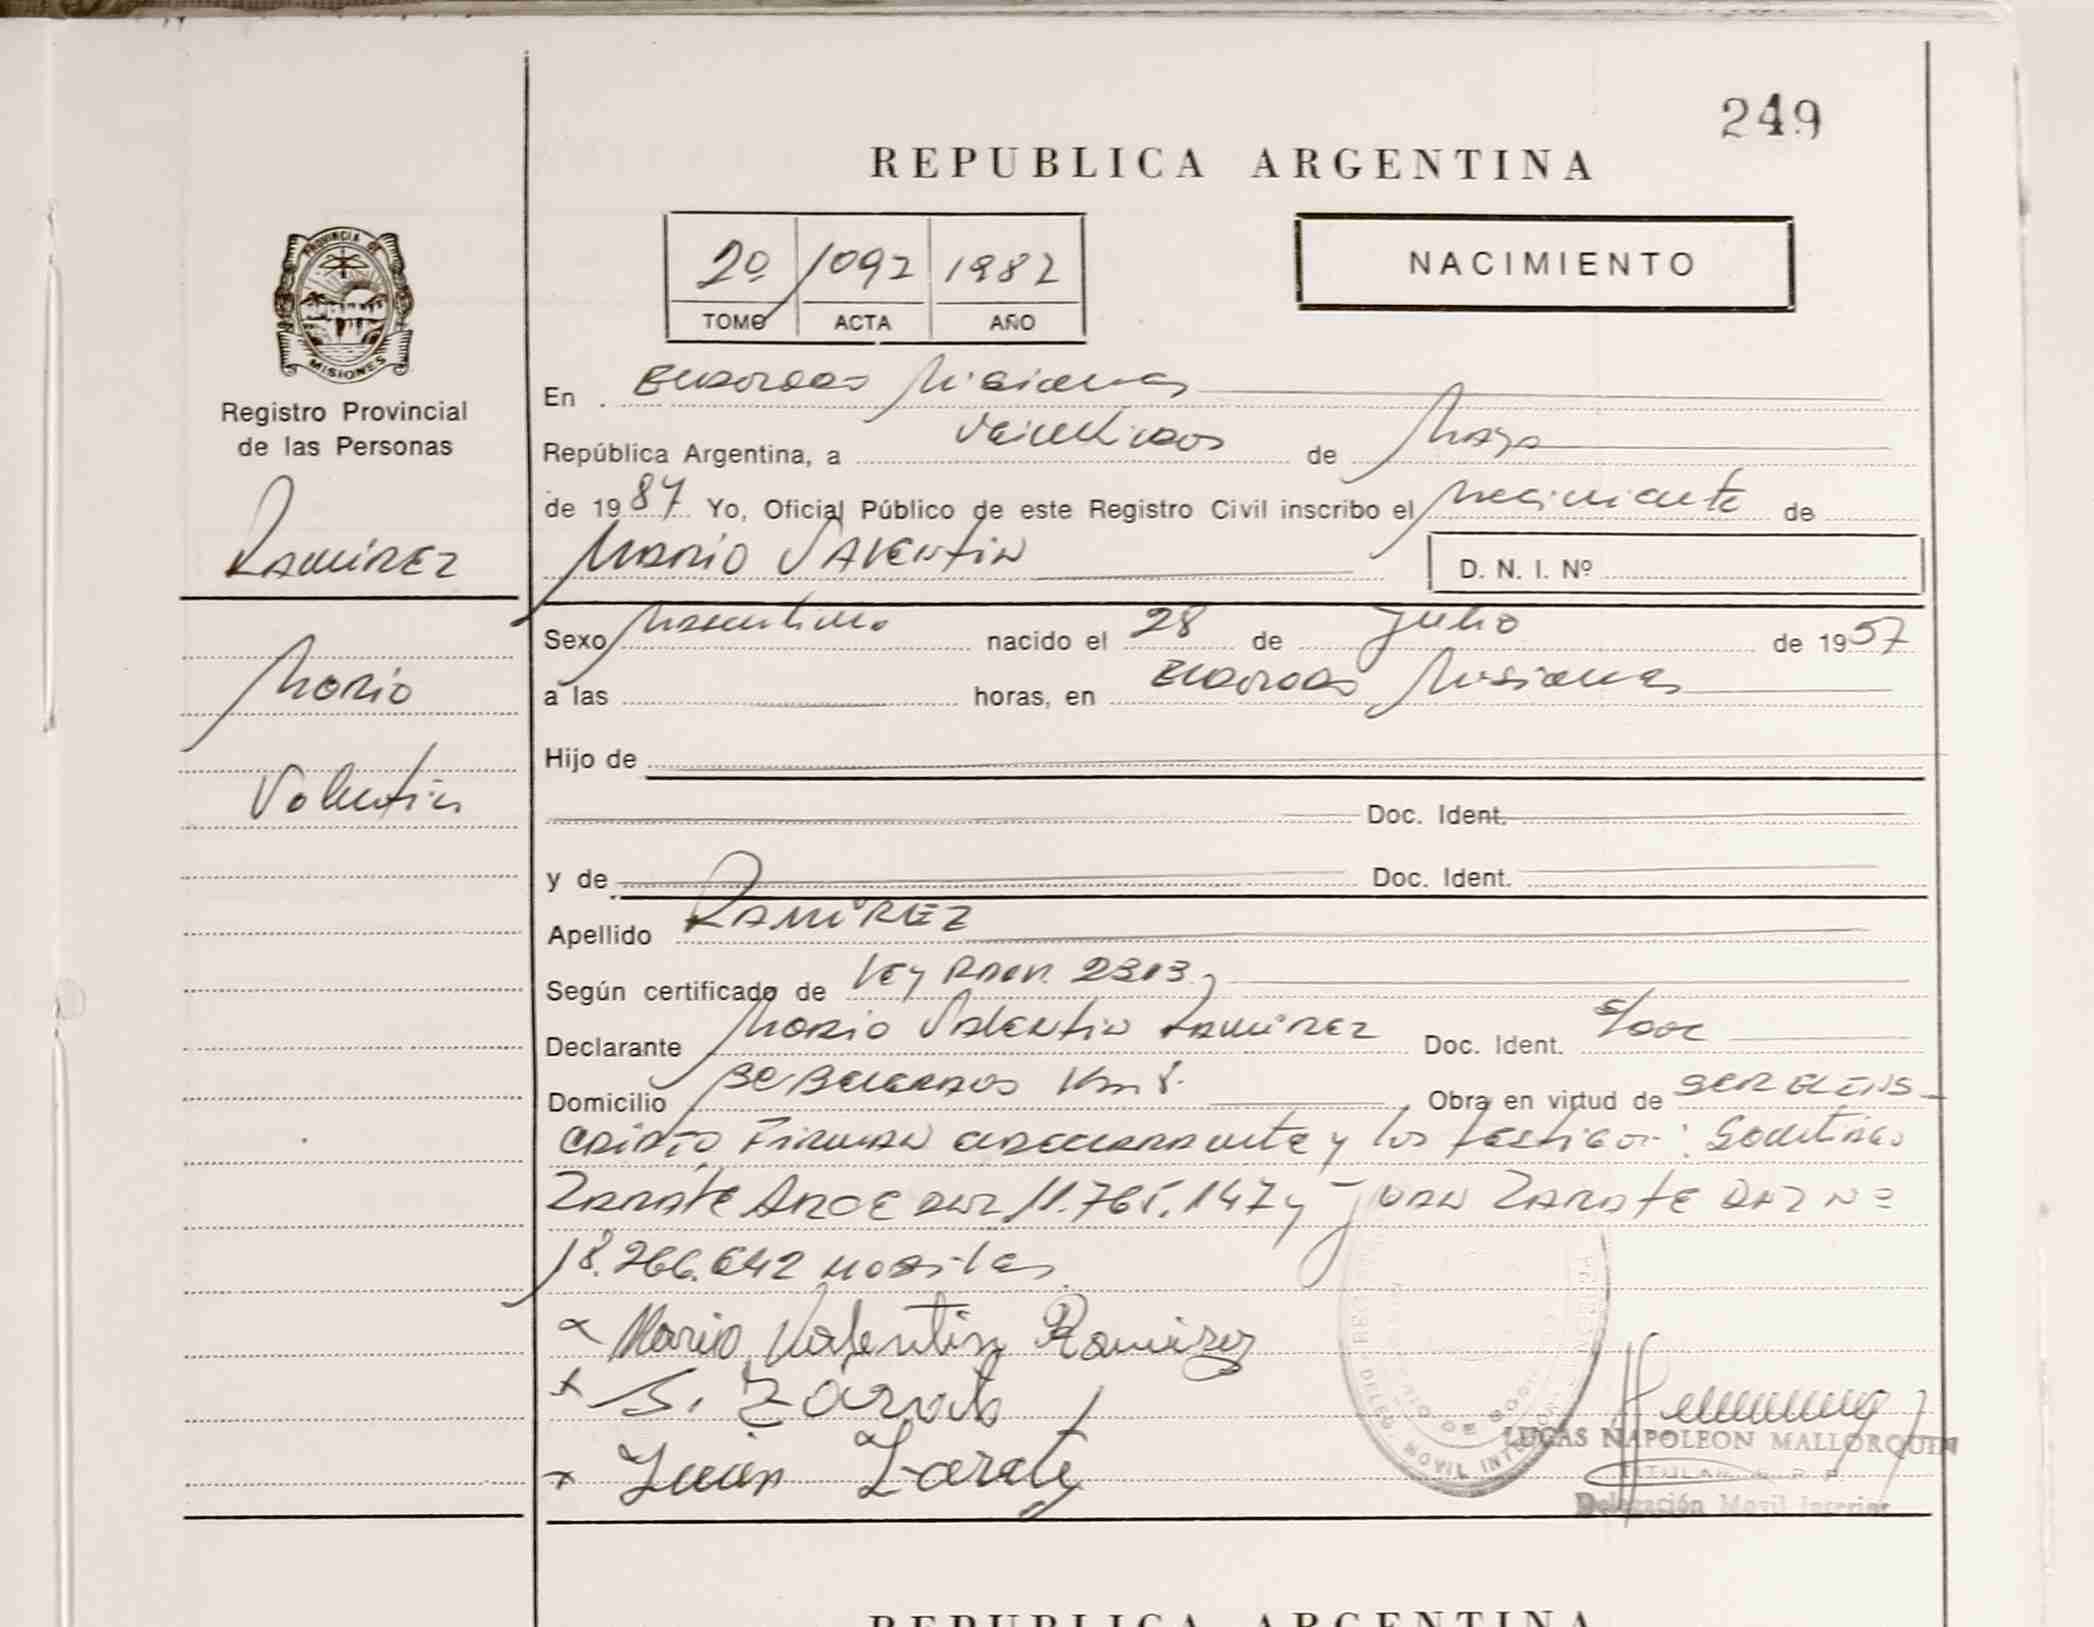 249
REPUBLICA ARGENTINA
2º 1092 1982
TOMO ACTA AÑO
NACIMIENTO
PROVINCIA DE
MISIONES
Registro Provincial
de las Personas
RAMIREZ
Mario
Valentin
En Misiones
República Argentina, a Veintidos de Mayo
de 1987 Yo, Oficial Público de este Registro Civil inscribo el Nacimiento de
MARIO VALENTIN D. N. I. Nº
Sexo Masculino nacido el 28 de Julio de 1957
a las horas, en Misiones
Hijo de
Doc. Ident.
y de Doc. Ident.
Apellido RAMIREZ
Según certificado de Ley 2313
Declarante Mario Valentin RAMIREZ Doc. Ident. s/doc
Domicilio Km 8. Obra en virtud de SER EL INS-
CRIPTO Firman el declarante y los testigos: Santiago
ZARATE ARCE DNI 11.765.147 y JUAN ZARATE DNI Nº
18.266.642
x Mario Valentin Ramirez
x S. Zarate
x Juan Zarate
LUCAS NAPOLEON MALLORQUIN
TITULAR
Delegación Movil Interior
REPUBLICA ARGENTINA